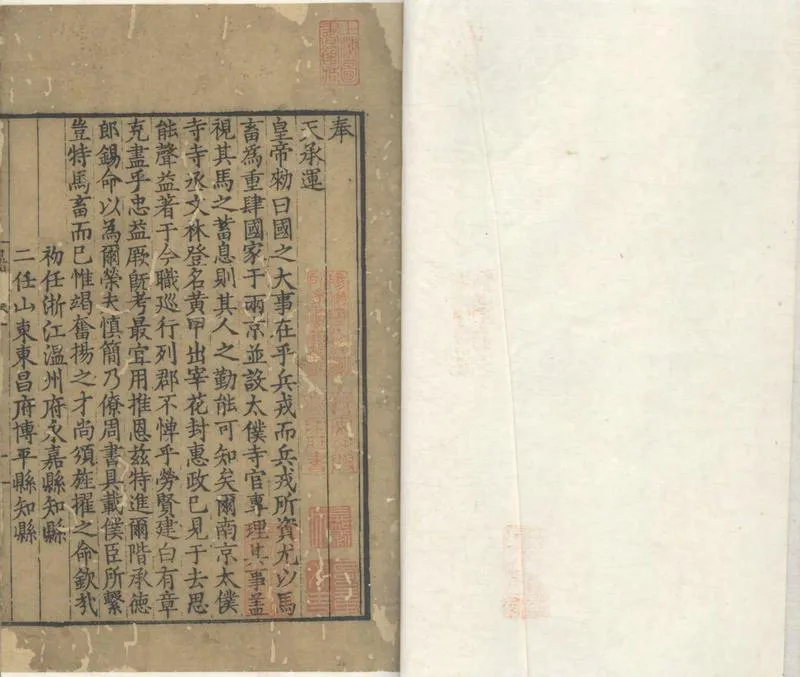 奉
天承運
皇帝勑曰國之大事在乎兵戎而兵戎所資尤以馬
畜為重肆國家于兩京並設太僕寺官專理其事盖
視其馬之蓄息則其人之勤能可知矣爾南京太僕
寺寺丞文林登名黃甲出宰花封惠政已見于去思
能聲益著于今職巡行列郡不惮乎勞賢建白有章
克盡乎忠益厥旣考最宜用推恩兹特進爾階承德
郎錫命以為爾榮夫慎簡乃僚周書具載僕臣所繫
豈特馬畜而已惟竭奮揚之才尚須旌擢之命欽哉
初任浙江溫州府永嘉縣知縣
二任山東東昌府博平縣知縣